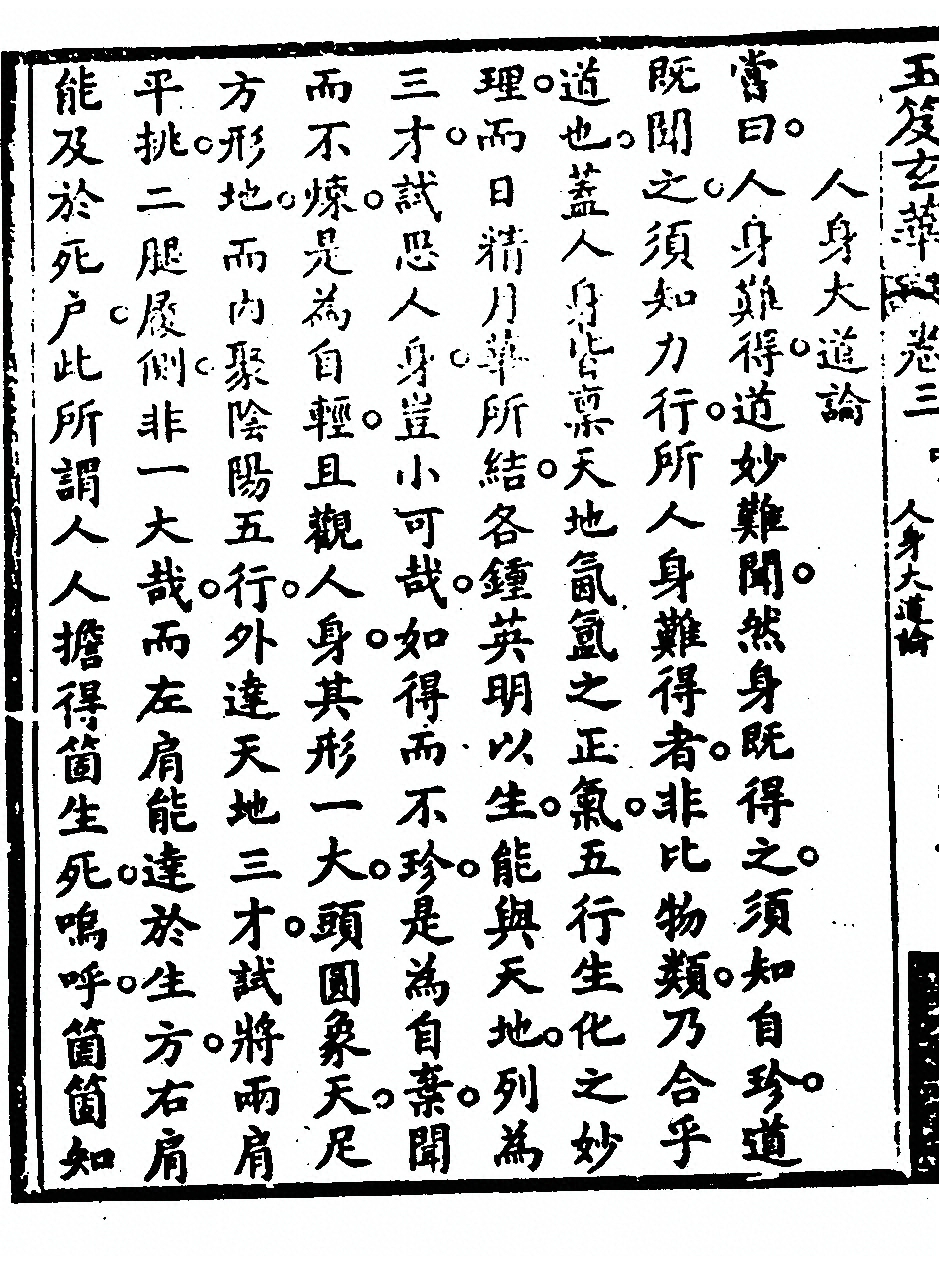 玉笈玄華 卷三 人身大道論
人身大道論
嘗曰。人身難得。道妙難聞。然身既得之。須知自珍。道
既聞之。須知力行。所人身難得者。非比物類。乃合乎
道也。蓋人身皆禀天地氤氳之正氣。五行生化之妙
理。而日精月華所結。各鍾英明以生。能與天地。列為
三才。試思人身。豈小可哉。如得而不珍。是為自棄。聞
而不煉。是為自輕。且觀人身。其形一大。頭圓象天。足
方形地。而內聚陰陽五行。外達天地三才。試將兩肩
平挑。二腿屐側。非一大哉。而左肩能達於生方。右肩
能及於死户。此所謂人人擔得箇生死。嗚呼。箇箇知